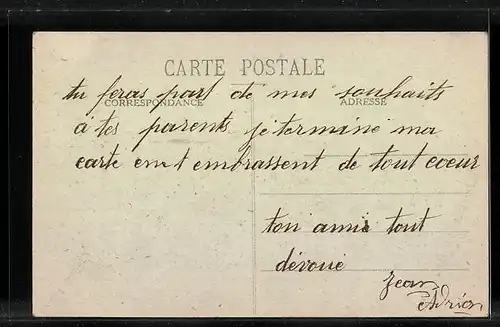 CARTE POSTALE
tu feras part de mes souhaits
CORRESPONDANCE ADRESSE
a tes parents je termine ma
carte em t embrassent de tout coeur
ton ami tout
dévoué
Jean
Adrien